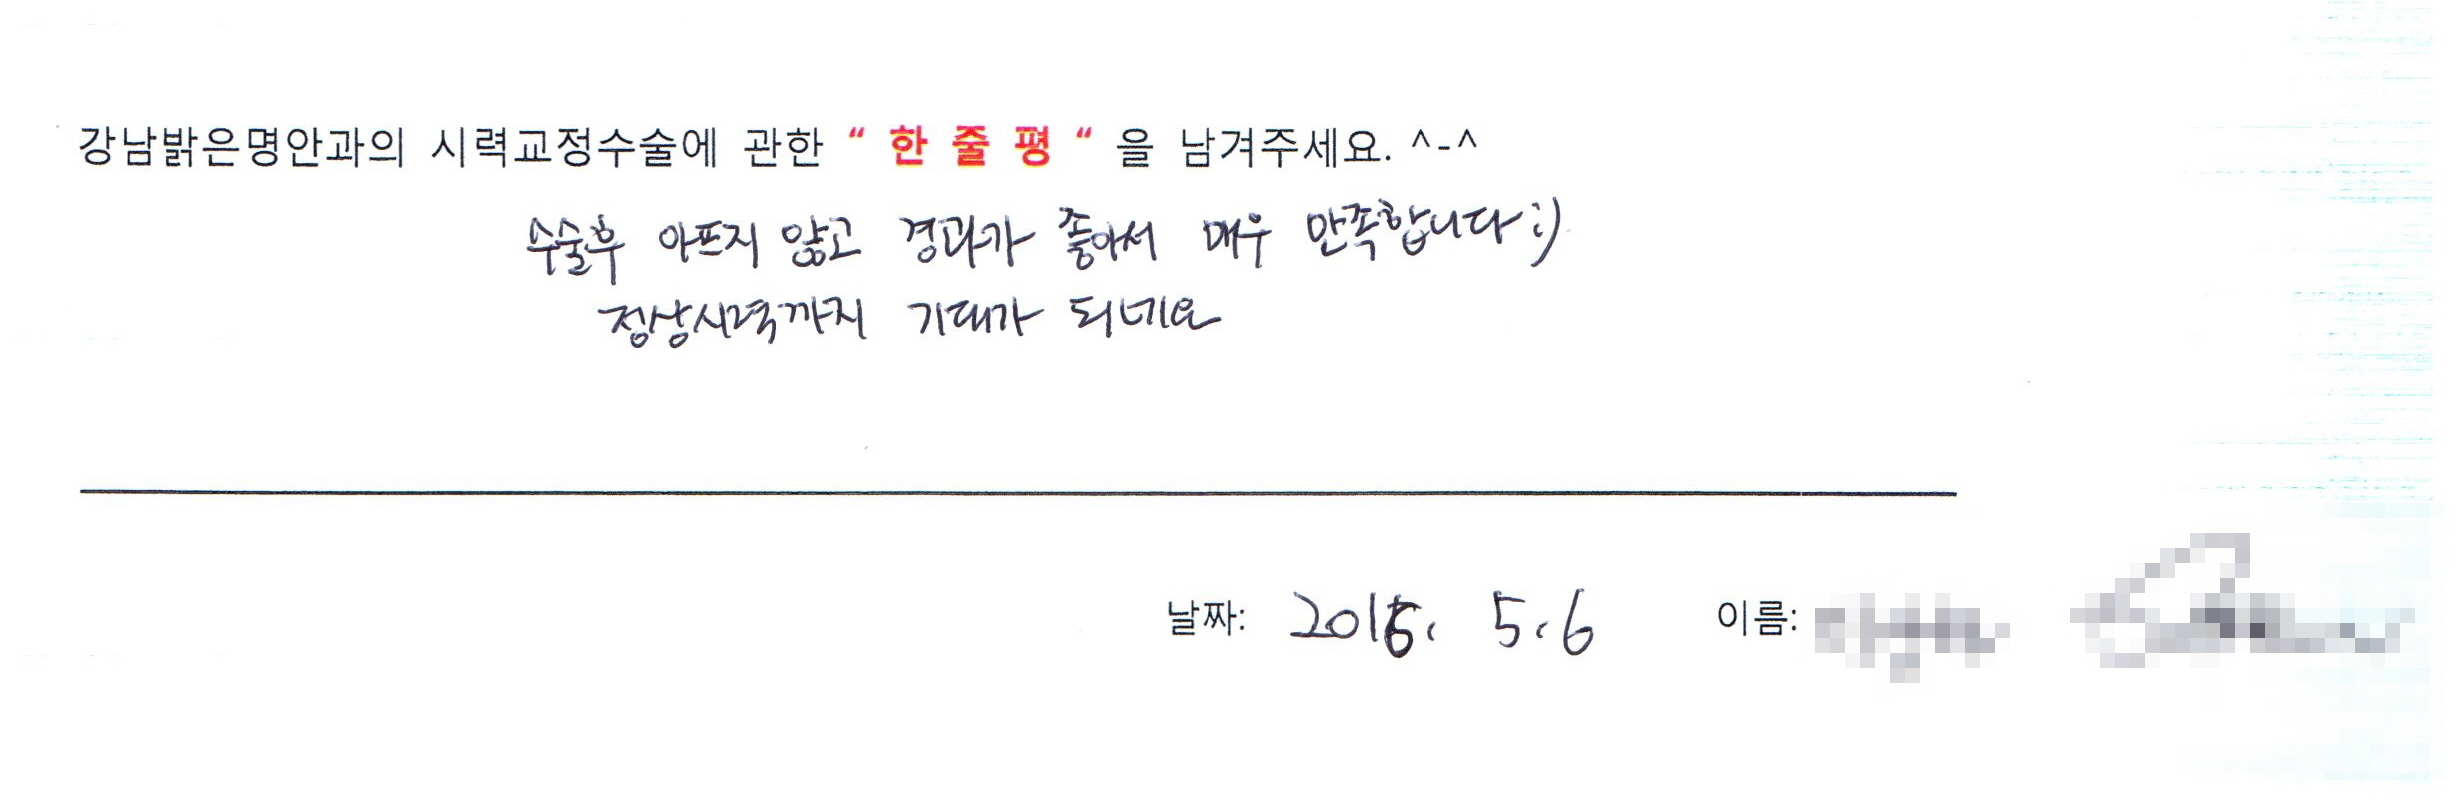 강남밝은명안과의 시력교정수술에 관한 “ 한 줄 평 “ 을 남겨주세요. ^-^
수술후 아프지 않고 경과가 좋아서 매우 만족합니다:)
정상시력까지 기대가 되네요
날짜: 2015. 5.6 이름: